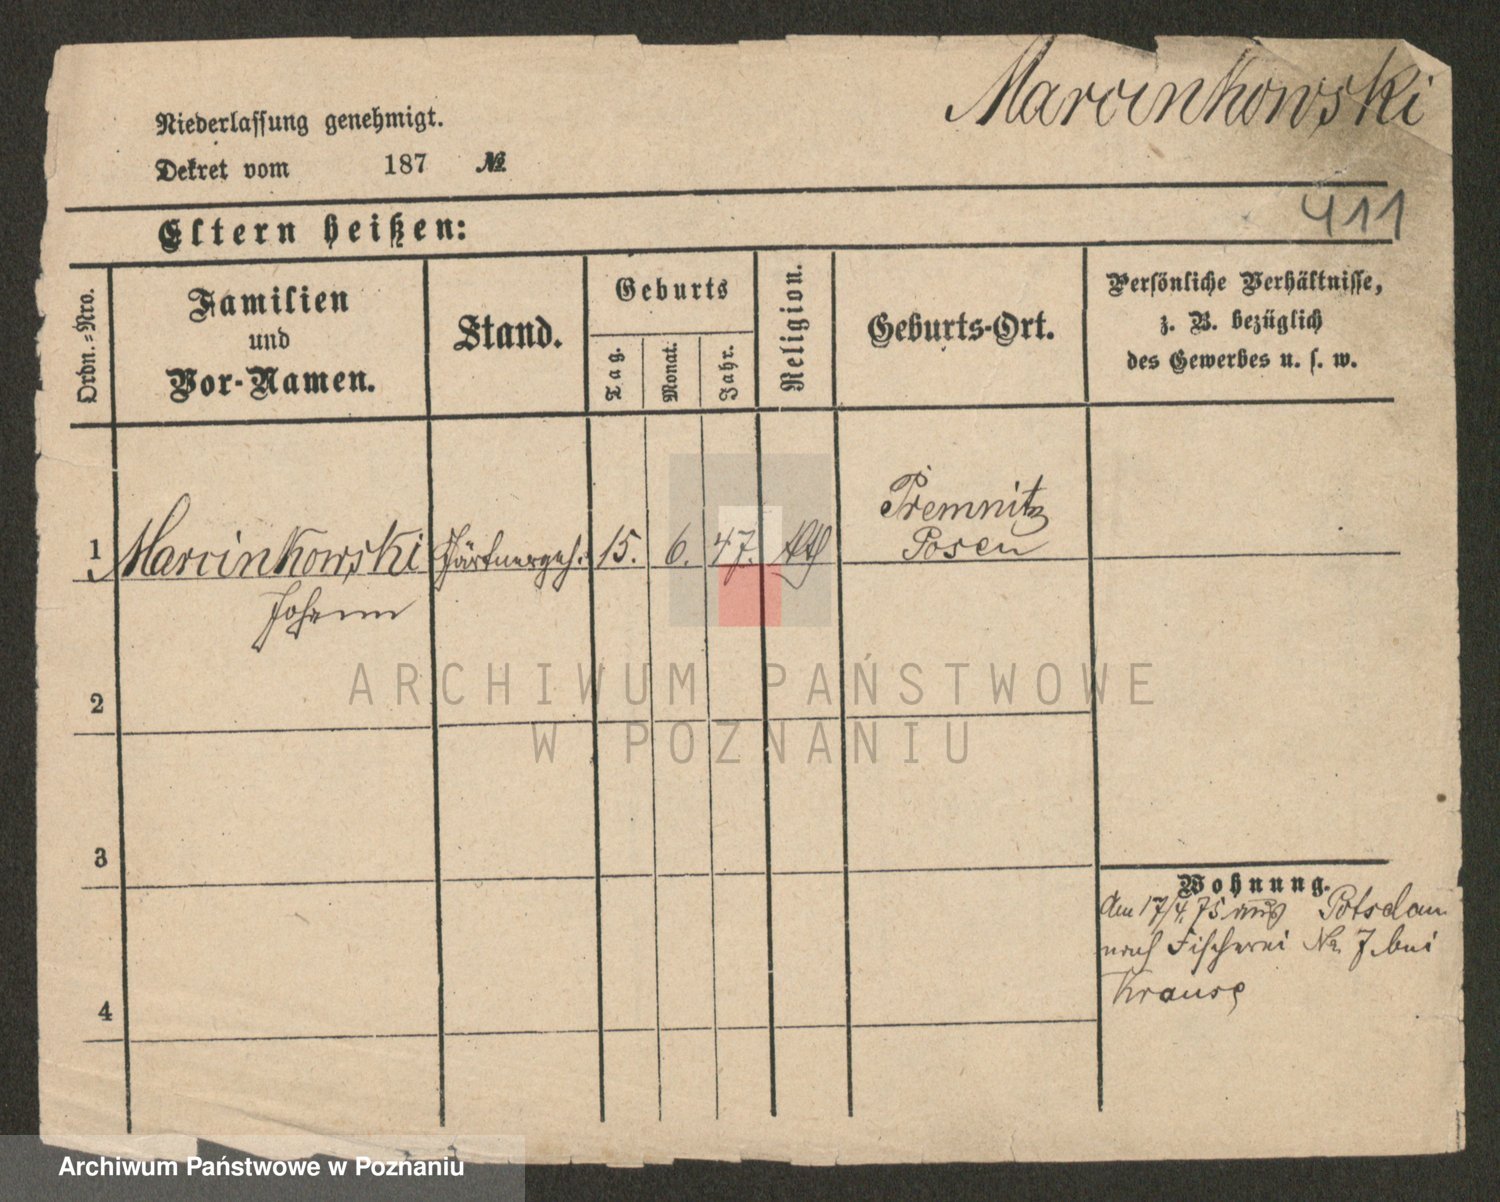 Marcinkowski
Niederlassung genehmigt.
Dekret vom 187 №
411
Eltern heißen:
Ordn.-Nro.
Familien
und
Vor-Namen.
Stand.
Geburts
Tag.
Monat.
Jahr.
Religion.
Geburts-Ort.
Persönliche Verhältnisse,
z. B. bezüglich
des Gewerbes u. s. w.
1 Marcinkowski Gärtnergeh. 15. 6. 47. kth Premnitz
Johann Posen
2
3
4
Wohnung.
Am 17/4. 75 aus Potsdam
nach Fischerei No 7 bei
Krause
ARCHIWUM PAŃSTWOWE
W POZNANIU
Archiwum Państwowe w Poznaniu